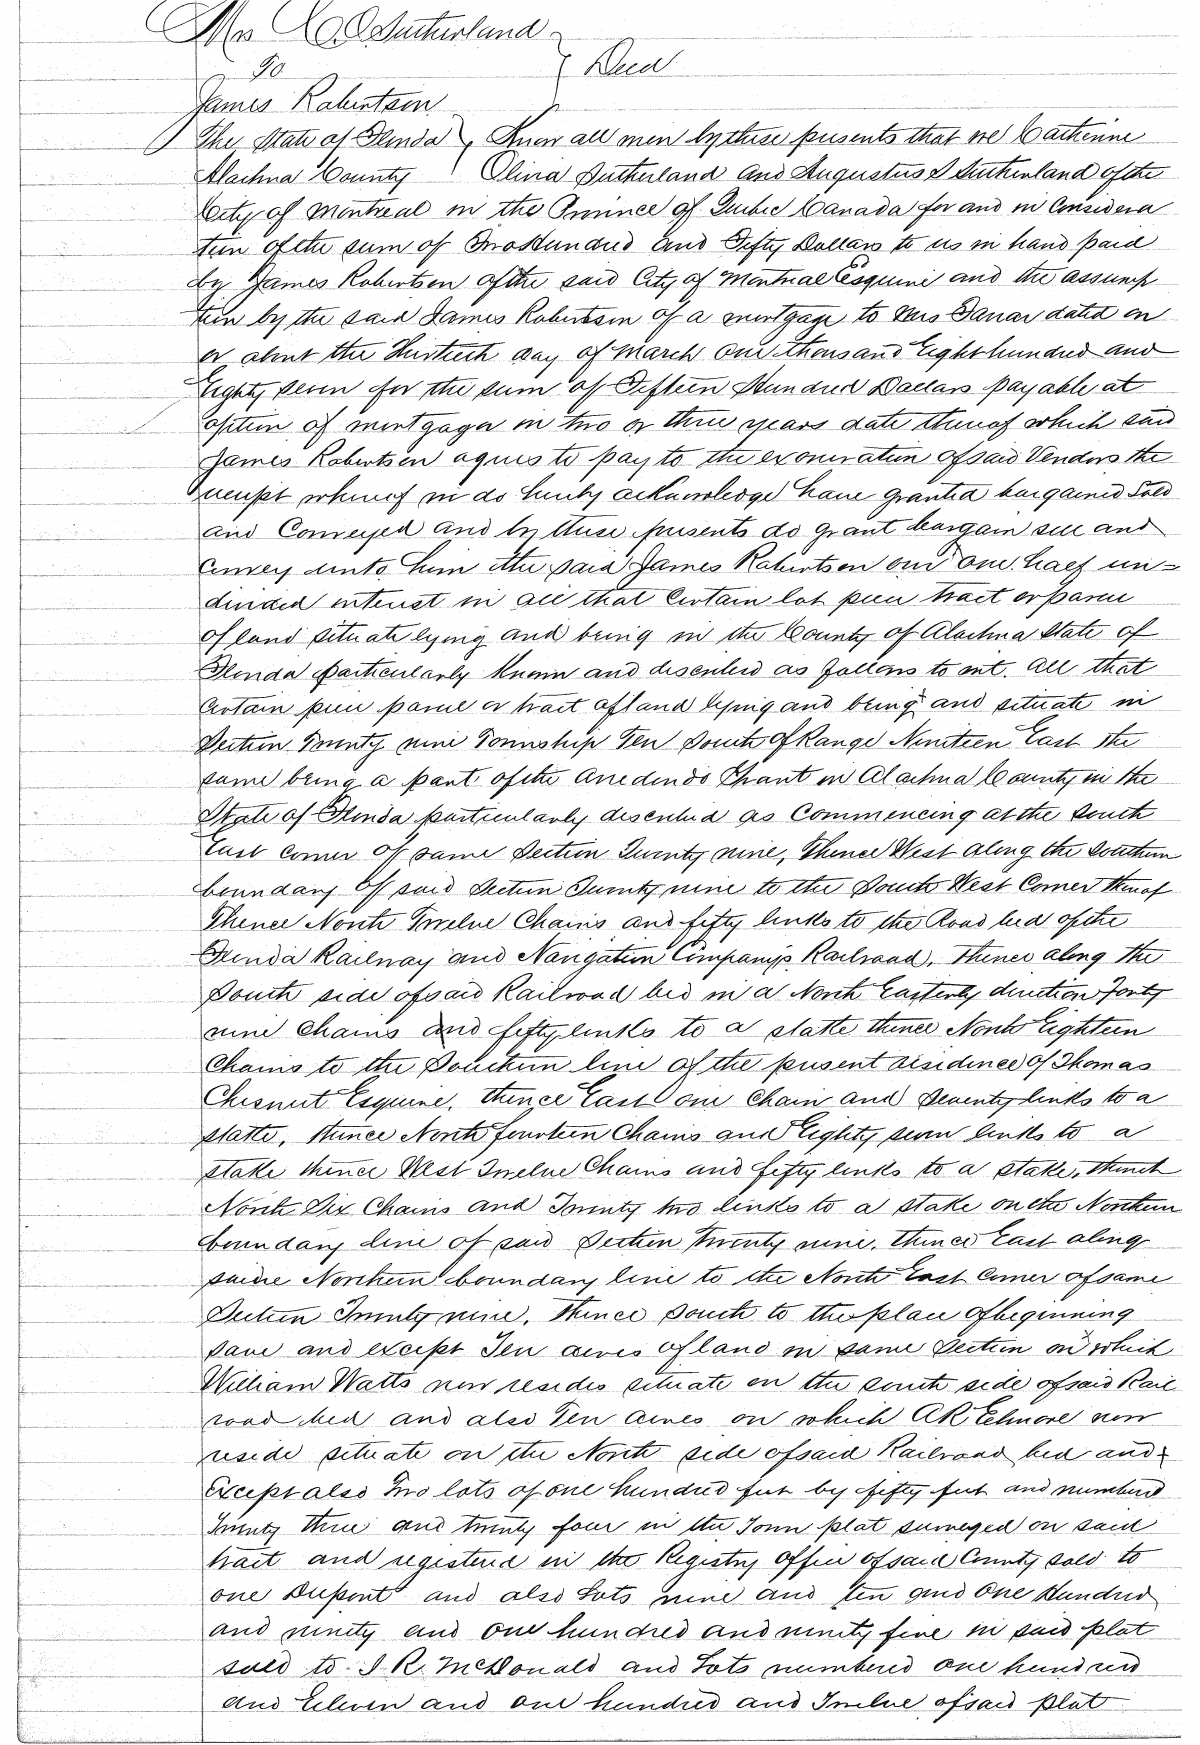 Mrs C O Sutherland
To } Deed
James Robertson
The State of Florida } Know all men by these presents that we Catherine
Alachua County Olivia Sutherland and Augustus S Sutherland of the
City of Montreal in the Province of Quebec Canada for and in Considera
tion of the sum of Two Hundred and Fifty Dollars to us in hand paid
by James Robertson of the said City of Montreal Esquire and the assump
tion by the said James Robertson of a mortgage to dated on
or about the Thirtieth day of March One thousand Eight hundred and
Eighty seven for the sum of Fifteen Hundred Dollars payable at
option of mortgagor in two or three years date thereof which said
James Robertson agrees to pay to the exoneration of said Vendors the
receipt whereof we do hereby acknowledge have granted bargained Sold
and Conveyed and by these presents do grant bargain sell and
Convey unto him the said James Robertson our one half un=
divided interest in all that Certain lot piece tract or parcel
of land situate lying and being in the County of Alachua State of
Florida particularly Known and described as follows to wit. All that
Certain piece parcel or tract of land lying and being and situate in
Section Twenty nine Township Ten South of Range Nineteen East the
same being a part of the Arredondo Grant in Alachua County in the
State of Florida particularly described as Commencing at the South
East Corner of same Section Twenty nine, Thence West along the Southern
boundary of said Section Twenty nine to the South West Corner thereof
Thence North Twelve Chains and fifty links to the Road bed of the
Florida Railway and Navigation Company's Railroad, thence along the
South side of said Railroad bed in a North Easterly direction Forty
nine Chains and fifty links to a statke thence North Eighteen
Chains to the Southern line of the present residence of Thomas
Chesnut Esquire, thence East one Chain and Seventy links to a
statke, thence North fourteen Chains and Eighty seven links to a
stake thence West Twelve Chains and fifty links to a stake, thence
North Six Chains and Twenty two links to a stake on the Northern
boundary line of said Section Twenty nine, thence East along
saide Northern boundary line to the North East Corner of same
Section Twenty nine, thence South to the place of beginning
save and except Ten acres of land in same Section on which
William Watts now resides situate on the south side of said Rail
road bed and also Ten acres on which A R Elmore now
reside situate on the North side of said Railroad bed and
Except also Two lots of one hundred feet by fifty feet and numbered
Twenty three and twenty four in the Town plat surveyed on said
tract and registered in the Registry Office of said County sold to
one Dupont and also Lots nine and ten and One Hundred
and ninety and one hundred and ninety five in said plat
sold to J. R. McDonald and Lots numbered one hundred
and Eleven and one hundred and Twelve of said plat